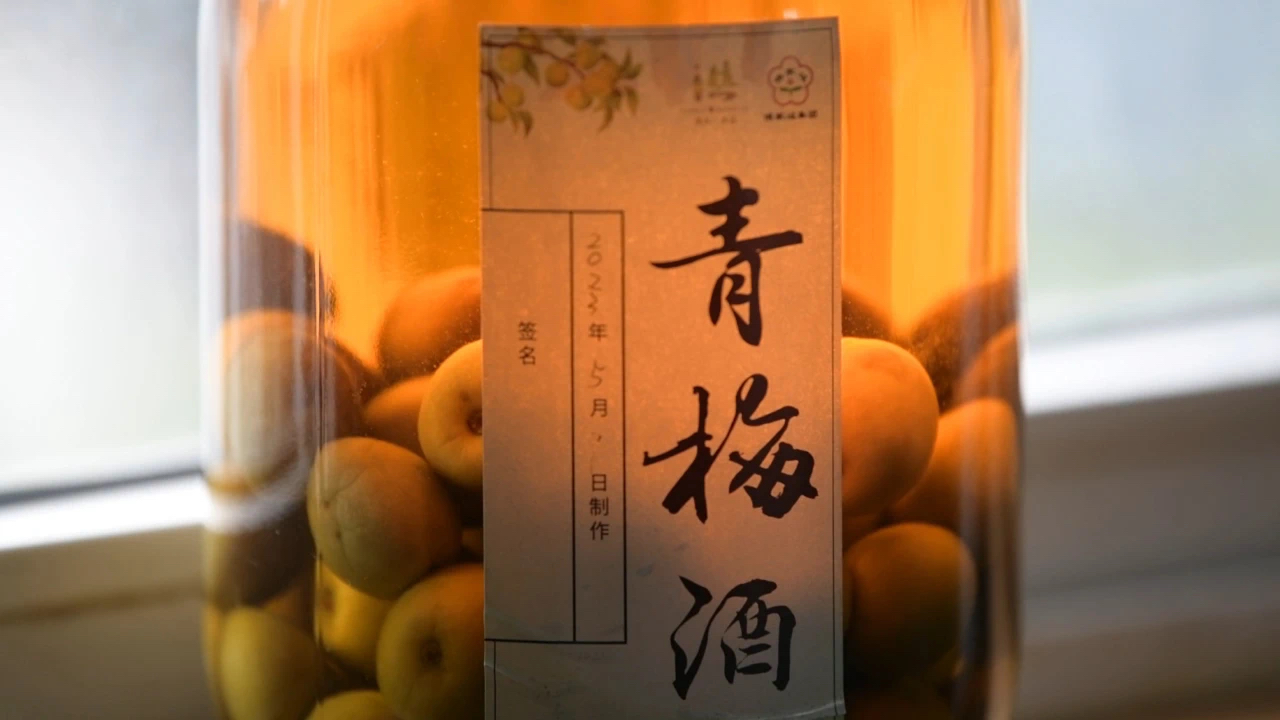 青梅酒
2023年5月 日制作
签名